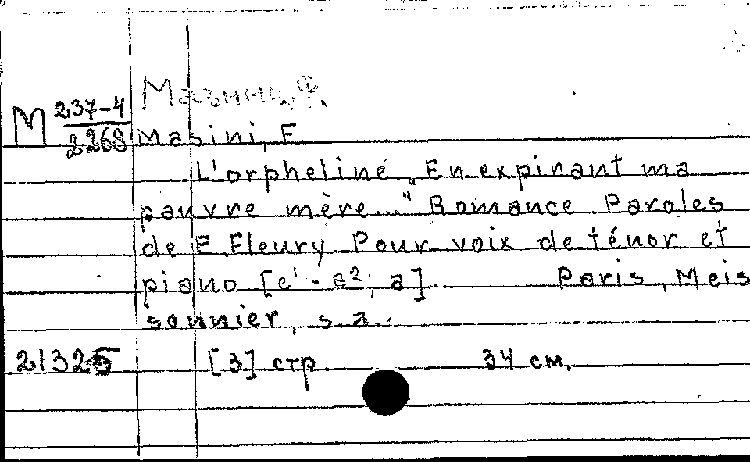 Мазини, Ф.
M 237-4
2268
Masini, F
L'orpheliné „En expirant ma
pauvre mère..." Romance Paroles
de E Fleury Pour voix de ténor et
piano [e¹ - a², a] Paris, Meis
sonnier, s. a.
21325
[3] стр 34 см.